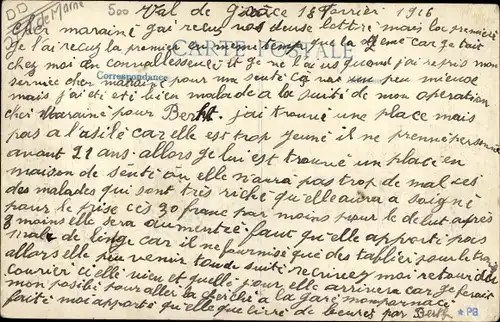 de Marne
500 Val de Grace 18 Fevrier 1916
Cher maraine j'ai recus vos deuse lettre mais la premiere
je l'ai recus la premier en meme temps que la 2eme car jetait
CARTE POSTALE
chez moi en convallessence et je l'ai eus quand j'ai repris mon
Correspondance
service cher maraine pour ma senté ca vas un peu mieuse
mais j'ai eté eté bien malade a la suite de mon operation
cher Maraine pour Berht. j'ai trouvé une place mais
pas a l'asile car elle est trop jeune il ne prenne personne
avant 21 ans. allors je lui est trouvé un place en
maison de sente ou elle n'aura pas trop de mal ces
des malades qui sont tres riche qu'elle aura a soigné
pour le prise ces 30 franc par moins pour le debut apres
3 moins elle sera augmenté. faut qu'elle apporte pas
mal de linge car il ne fournisse que des tablier pour le
allors elle peu venir tou de suite recrivez moi retour du
courier ci elle vien et quelle jour elle arrivera car je ferais
mon posible pour aller la cherché a la gare monparnace
faite moi apporté qu'elle que livre de beures par Berth
*PB